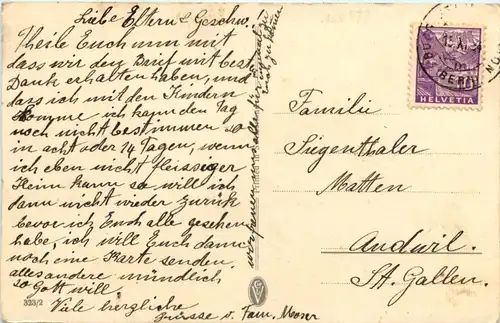 Liebe Eltern & Geschw.
Theile Euch nun mit
dass wir den Brief mit best.
Dank erhalten haben, und
dass ich mit den Kindern
komme ich kann den Tag
noch nicht bestimmen so
in acht oder 14 Tagen, wenn
ich eben nicht fleissiger
Heim kann so will ich
dann nicht wieder zurück
bevor ich Euch alle gesehen
habe, ich will Euch dann
noch eine Karte senden.
alles andere mündlich
so Gott will.
Viele herzliche
Grüsse v. Fam. Moser
Familie
Siegenthaler
Matten
Andwil.
St. Gallen.
HELVETIA
10
323/2